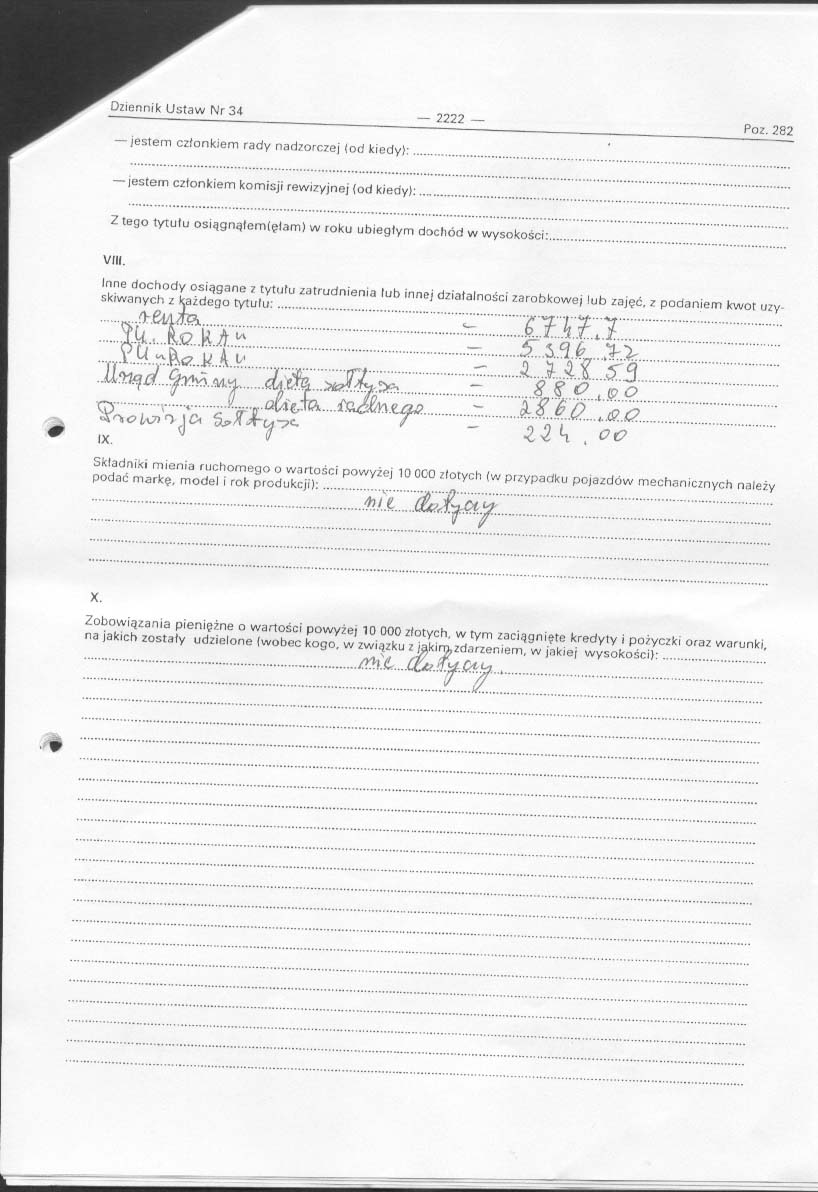 Dziennik Ustaw Nr 34 — 2222 — Poz. 282
— jestem członkiem rady nadzorczej (od kiedy):
— jestem członkiem komisji rewizyjnej (od kiedy):
Z tego tytułu osiągnąłem(ęłam) w roku ubiegłym dochód w wysokości:
VIII.
Inne dochody osiągane z tytułu zatrudnienia lub innej działalności zarobkowej lub zajęć, z podaniem kwot uzy-
skiwanych z każdego tytułu:
renta – 6747.7
ROKAU – 5396 72
ROKAU – 2728 59
Urząd Gminy dieta sołtysa – 880.00
dieta radnego – 2860.00
Prowizja Sołtysa – 224.00
IX.
Składniki mienia ruchomego o wartości powyżej 10 000 złotych (w przypadku pojazdów mechanicznych należy
podać markę, model i rok produkcji):
nie dotyczy
X.
Zobowiązania pieniężne o wartości powyżej 10 000 złotych, w tym zaciągnięte kredyty i pożyczki oraz warunki,
na jakich zostały udzielone (wobec kogo, w związku z jakim zdarzeniem, w jakiej wysokości):
nie dotyczy